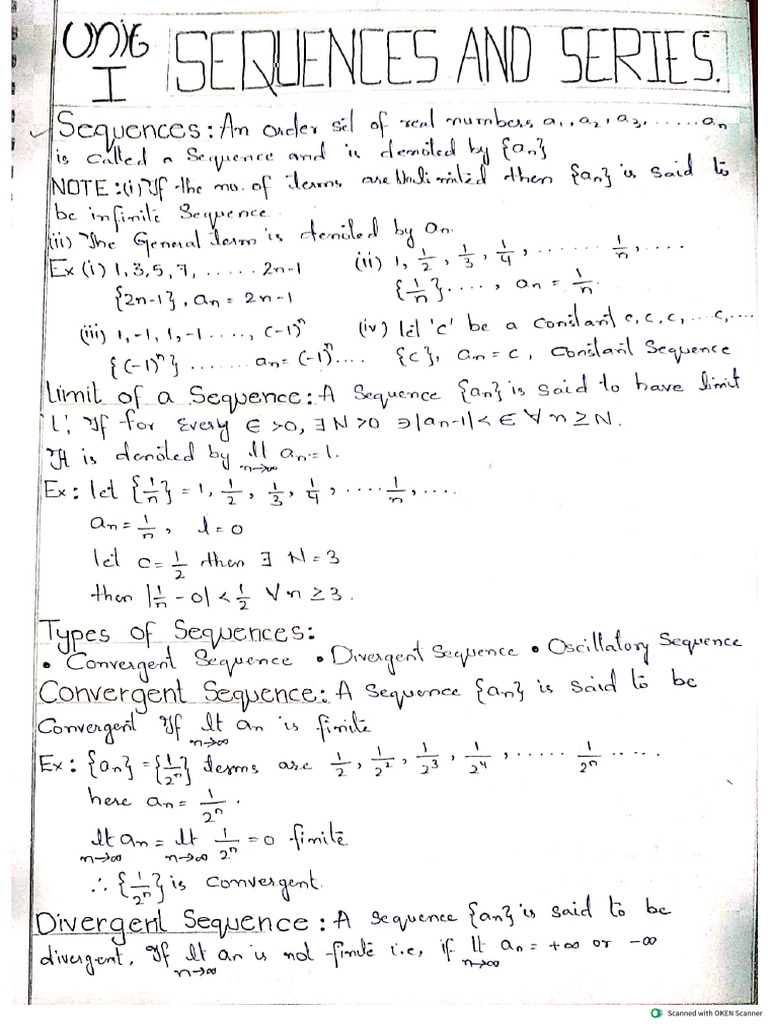 Unit I SEQUENCES AND SERIES.
Sequences: An order set of real numbers a₁, a₂, a₃, ...... aₙ
is called a sequence and is denoted by {aₙ}
NOTE: (i) If the no. of terms are unlimited then {aₙ} is said to
be infinite Sequence
(ii) The General term is denoted by aₙ.
Ex (i) 1, 3, 5, 7, ...... 2n-1 (ii) 1, 1/2, 1/3, 1/4, ...... 1/n, ....
{2n-1}, aₙ = 2n-1 {1/n}...., aₙ = 1/n.
(iii) 1, -1, 1, -1 ...., (-1)ⁿ (iv) let 'c' be a constant c, c, c, ... c, ...
{(-1)ⁿ} ....... aₙ = (-1)ⁿ.... {c}, aₙ = c, constant Sequence
Limit of a Sequence: A Sequence {aₙ} is said to have limit
'l', If for every ∈ >0, ∃ N >0 ∋ |aₙ-l| < ∈ ∀ n ≥ N.
It is denoted by lt n→∞ aₙ = l.
Ex: let {1/n} = 1, 1/2, 1/3, 1/4, .... 1/n, ....
aₙ = 1/n, l = 0
let c = 1/2 then ∃ N = 3
then |1/n - 0| < 1/2 ∀ n ≥ 3.
Types of Sequences:
• Convergent Sequence • Divergent Sequence • Oscillatory Sequence
Convergent Sequence: A Sequence {aₙ} is said to be
Convergent If lt n→∞ aₙ is finite
Ex: {aₙ} = {1/2ⁿ} terms are 1/2, 1/2², 1/2³, 1/2⁴, ..... 1/2ⁿ .....
here aₙ = 1/2ⁿ.
lt n→∞ aₙ = lt n→∞ 1/2ⁿ = 0 finite
∴ {1/2ⁿ} is convergent.
Divergent Sequence: A Sequence {aₙ} is said to be
divergent, If lt n→∞ aₙ is not finite i.e, if lt n→∞ aₙ = +∞ or -∞
Scanned with OKEN Scanner